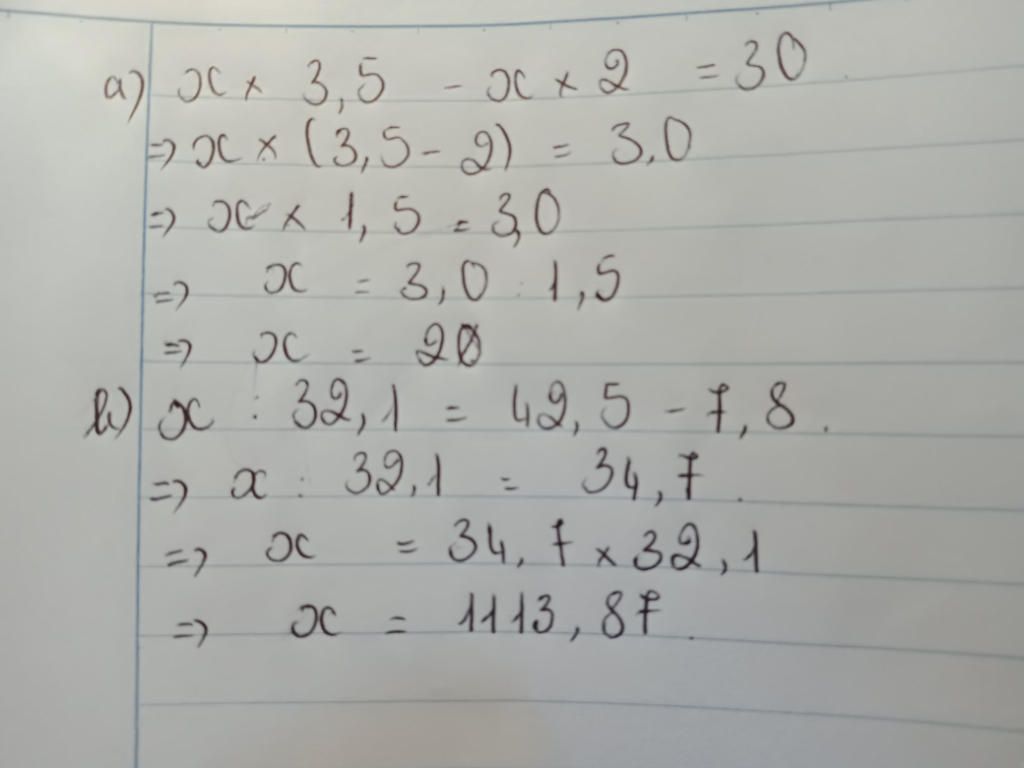 a) x × 3,5 - x × 2 = 30
=> x × (3,5 - 2) = 3,0
=> x × 1,5 = 3,0
=> x = 3,0 : 1,5
=> x = 20
b) x : 32,1 = 42,5 - 7,8.
=> x : 32,1 = 34,7.
=> x = 34,7 × 32,1
=> x = 1113,87.